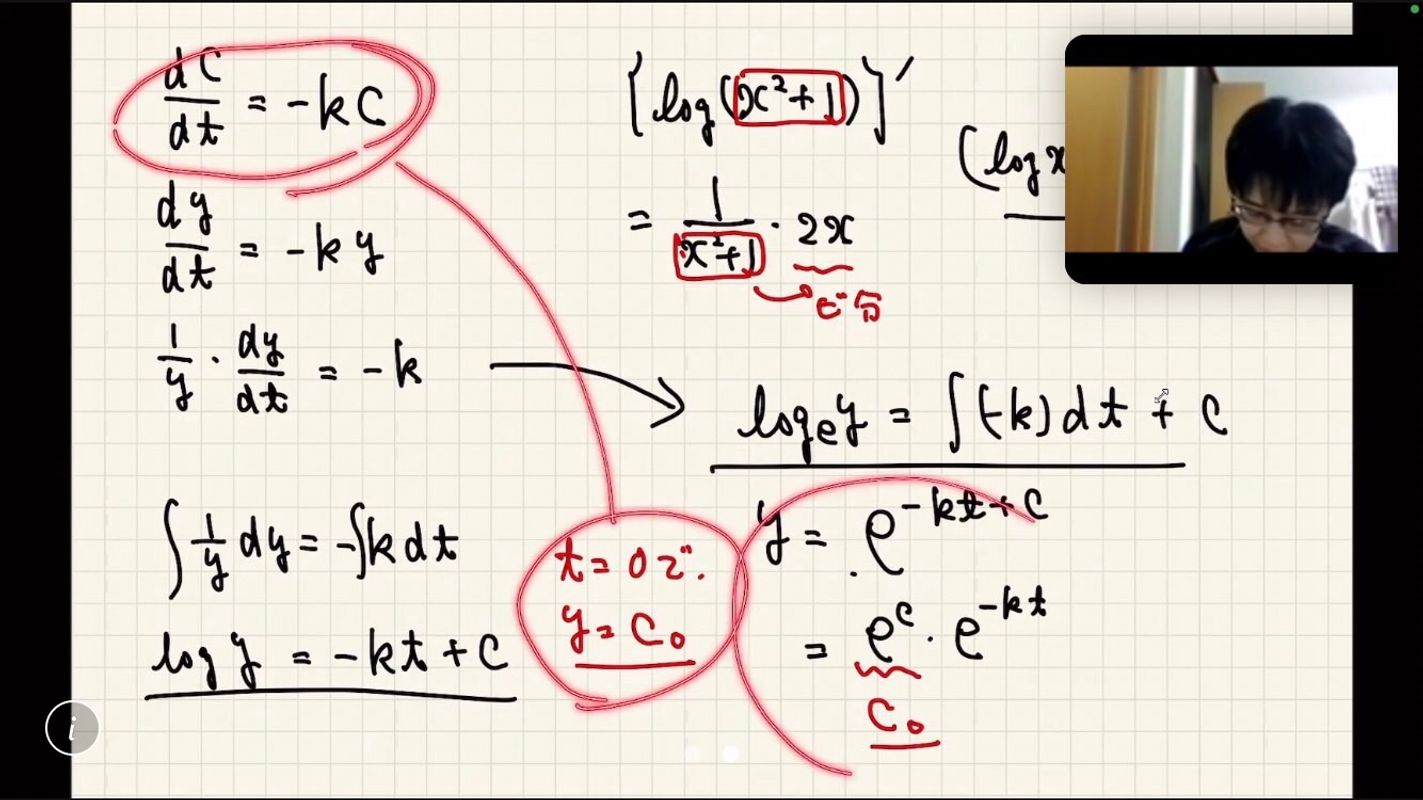 dC/dt = -kC
dy/dt = -ky
1/y · dy/dt = -k
∫ 1/y dy = -∫k dt
log y = -kt + C
{log(x²+1)}'
= 1/(x²+1) · 2x
(log x
logₑy = ∫(-k)dt + C
t=0で.
y=C₀
y = e^(-kt+C)
= e^C · e^(-kt)
C₀
i